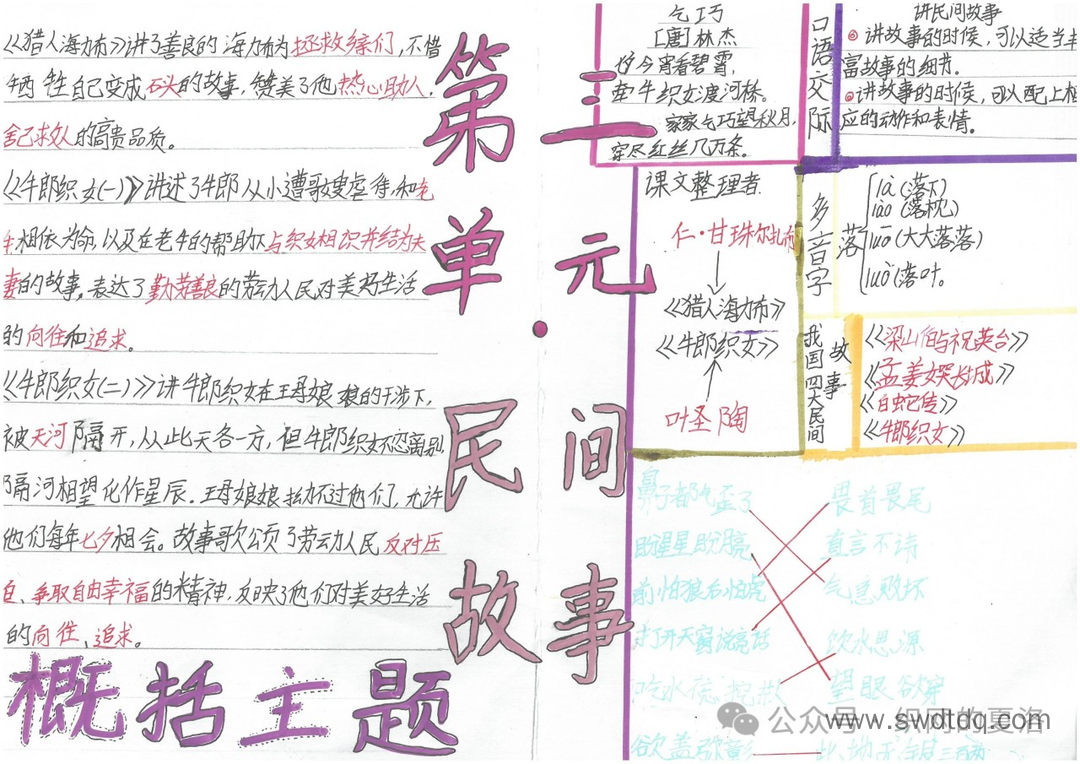 《猎人海力布》讲了善良的海力布为拯救乡亲们,不惜
牺牲自己变成石头的故事,赞美了他热心助人、
舍己救人的高贵品质。
《牛郎织女(一)》讲述了牛郎从小遭哥嫂虐待和老
牛相依为命,以及在老牛的帮助下与织女相识并结为夫
妻的故事,表达了勤劳善良的劳动人民对美好生活
的向往和追求。
《牛郎织女(二)》讲牛郎织女在王母娘娘的干涉下,
被天河隔开,从此天各一方,但牛郎织女不忍离别,
隔河相望化作星辰.王母娘娘拗不过他们,允许
他们每年七夕相会。故事歌颂了劳动人民反对压
迫、争取自由幸福的精神,反映了他们对美好生活
的向往、追求。
概括主题
第三
单元
·
民间
故事
乞巧
[唐]林杰
七夕今宵看碧霄,
牵牛织女渡河桥。
家家乞巧望秋月,
穿尽红丝几万条。
口语交际
讲民间故事
讲故事的时候,可以适当丰
富故事的细节.
讲故事的时候,可以配上相
应的动作和表情。
课文整理者
仁·甘珠尔扎布
《猎人海力布》
《牛郎织女》
叶圣陶
多音字
落
là(落下)
lào(落枕)
luō(大大落落)
luò(落叶)
我国四大民间
故事
《梁山伯与祝英台》
《孟姜女哭长城》
《白蛇传》
《牛郎织女》
鼻子都气歪了
盼星星盼月亮
前怕狼后怕虎
打开天窗说亮话
欲盖弥彰
畏首畏尾
直言不讳
气急败坏
饮水思源
望眼欲穿
公众号·织间的夏洛
www.swdtdq.com